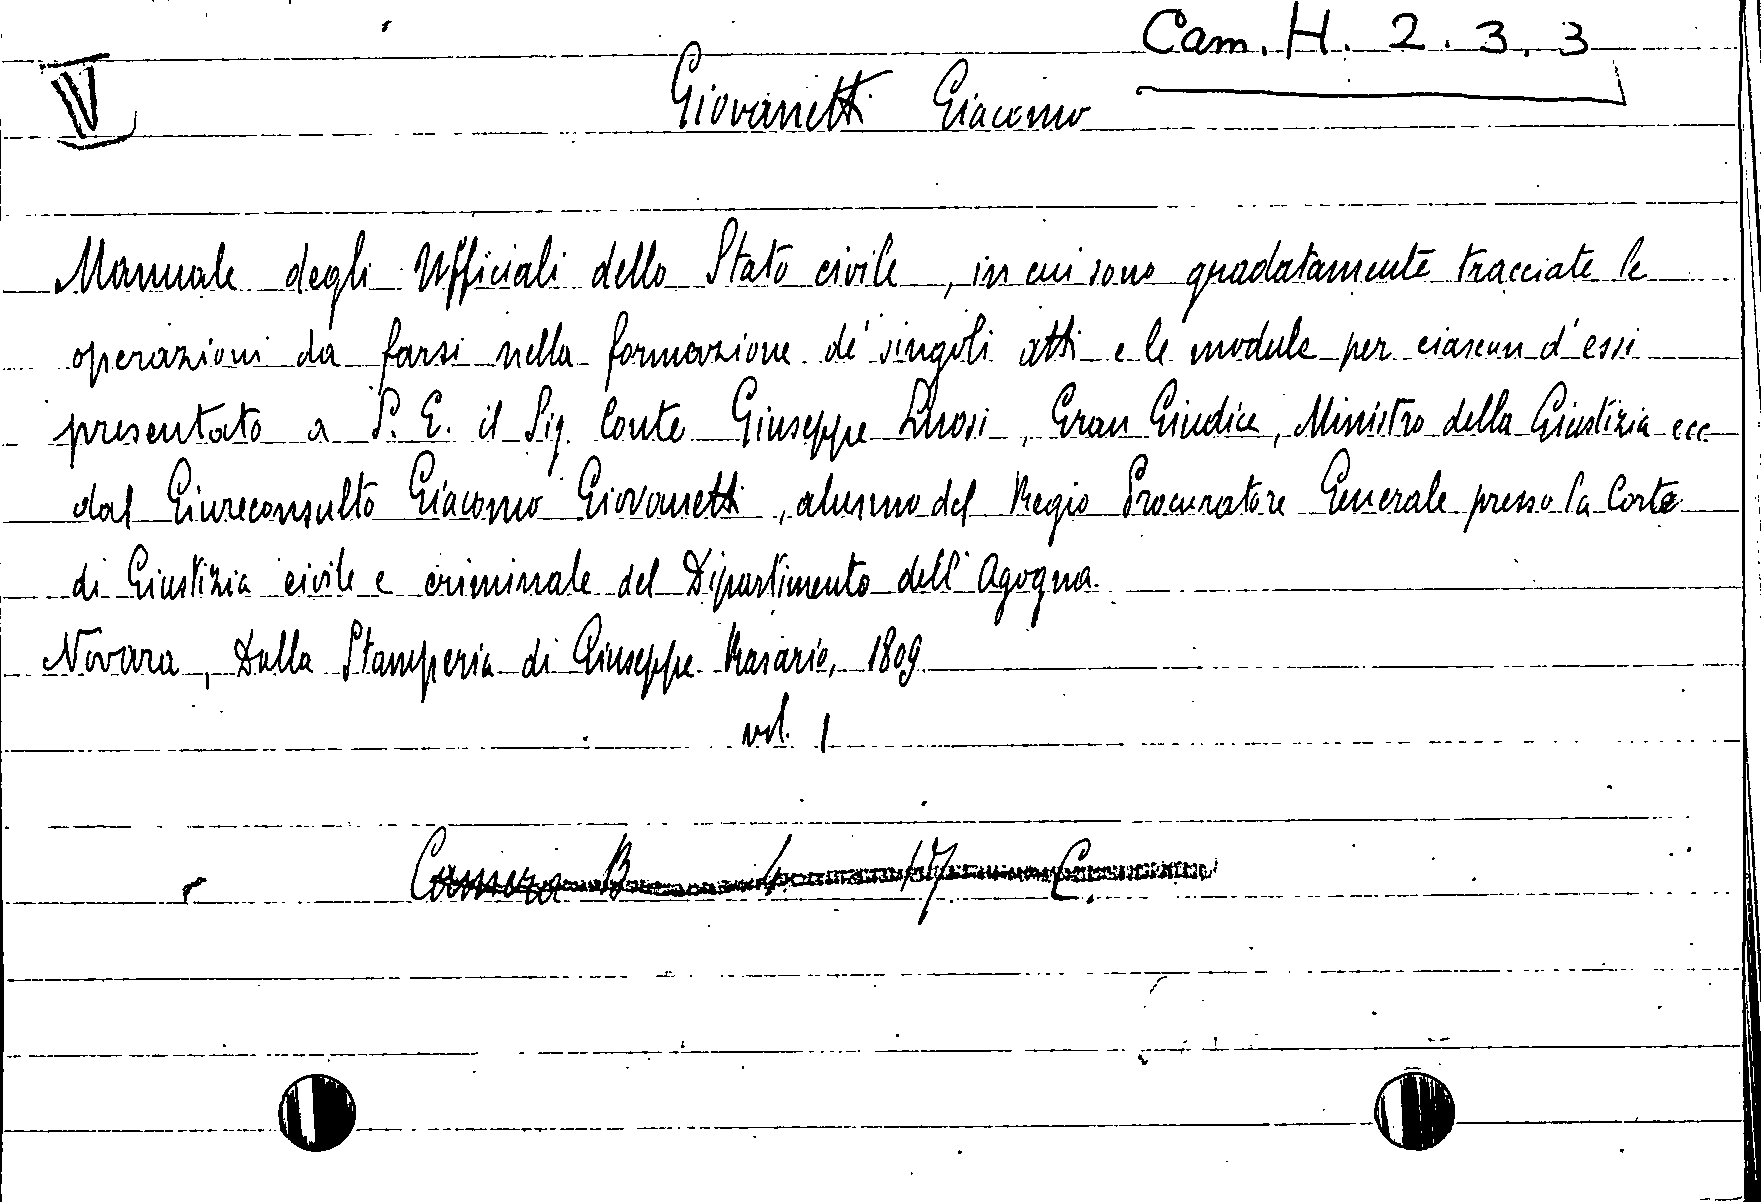 Cam. H. 2. 3. 3
V
Giovanetti Giacomo
Manuale degli Ufficiali dello Stato civile, in cui sono gradatamente tracciate le
operazioni da farsi nella formazione de' singoli atti e le module per ciascun d'essi
presentato a S. E. il Sig. Conte Giuseppe Luosi, Gran Giudice, Ministro della Giustizia ecc
dal Giureconsulto Giacomo Giovanetti, alunno del Regio Procuratore Generale presso la Corte
di Giustizia civile e criminale del Dipartimento dell'Agogna.
Novara, Dalla Stamperia di Giuseppe Rasario, 1809
vol. 1
Camera B 17 C.